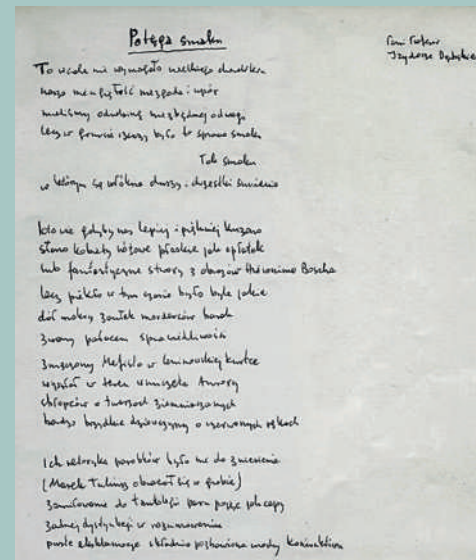 Potęga smaku
Pani Profesor
Izydorze Dąmbskiej
To wcale nie wymagało wielkiego charakteru
nasza niezgoda i upór
mieliśmy odrobinę niezbędnej odwagi
lecz w gruncie rzeczy była to sprawa smaku
Tak smaku
w którym są włókna duszy i chrząstki sumienia
Kto wie gdyby nas lepiej i piękniej kuszono
słano kobiety różowe płaskie jak opłatek
lub fantastyczne stwory z obrazów Hieronima Boscha
lecz piekło w tym czasie było byle jakie
dół mokry zaułek morderców barak
zwany pałacem sprawiedliwości
Mefisto w leninowskiej kurtce
wysyłał w teren wnuczęta Aurory
chłopców o twarzach ziemniaczanych
bardzo brzydkie dziewczyny o czerwonych rękach
Ich retoryka parobków była nie do zniesienia
(Marek Tuliusz obracał się w grobie)
zamiłowanie do tautologii para pojęć jak cepy
żadnej dystynkcji w rozumowaniu
puste eksklamacje składnia pozbawiona urody koniunktiwu